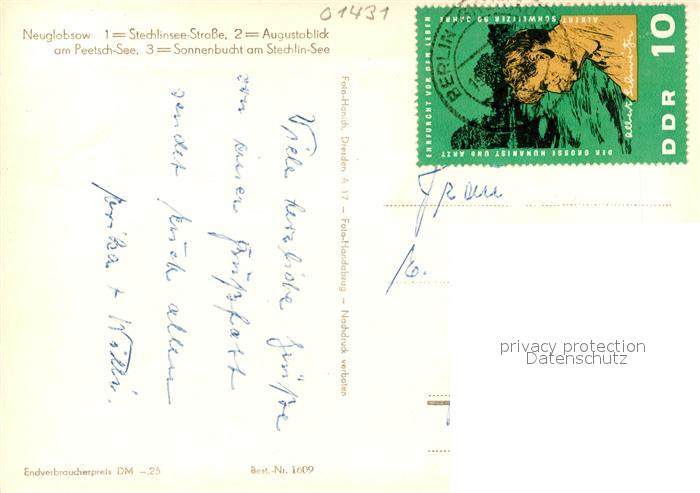 01431
Neuglobsow 1 = Stechlinsee-Straße, 2 = Augustablick
am Peetsch-See, 3 = Sonnenbucht am Stechlin-See
Viele herzliche Grüße
von einer
sendet Euch allen
+ Willi.
Foto-Hanich, Dresden A 17 – Foto-Handabzug – Nachdruck verboten
BERLIN
EHRFURCHT VOR DEM LEBEN
ALBERT SCHWEITZER 90 JAHRE
DER GROSSE HUMANIST UND ARZT
Albert Schweitzer
DDR 10
Frau
privacy protection
Datenschutz
Endverbraucherpreis DM –,25
Best.-Nr. 1609